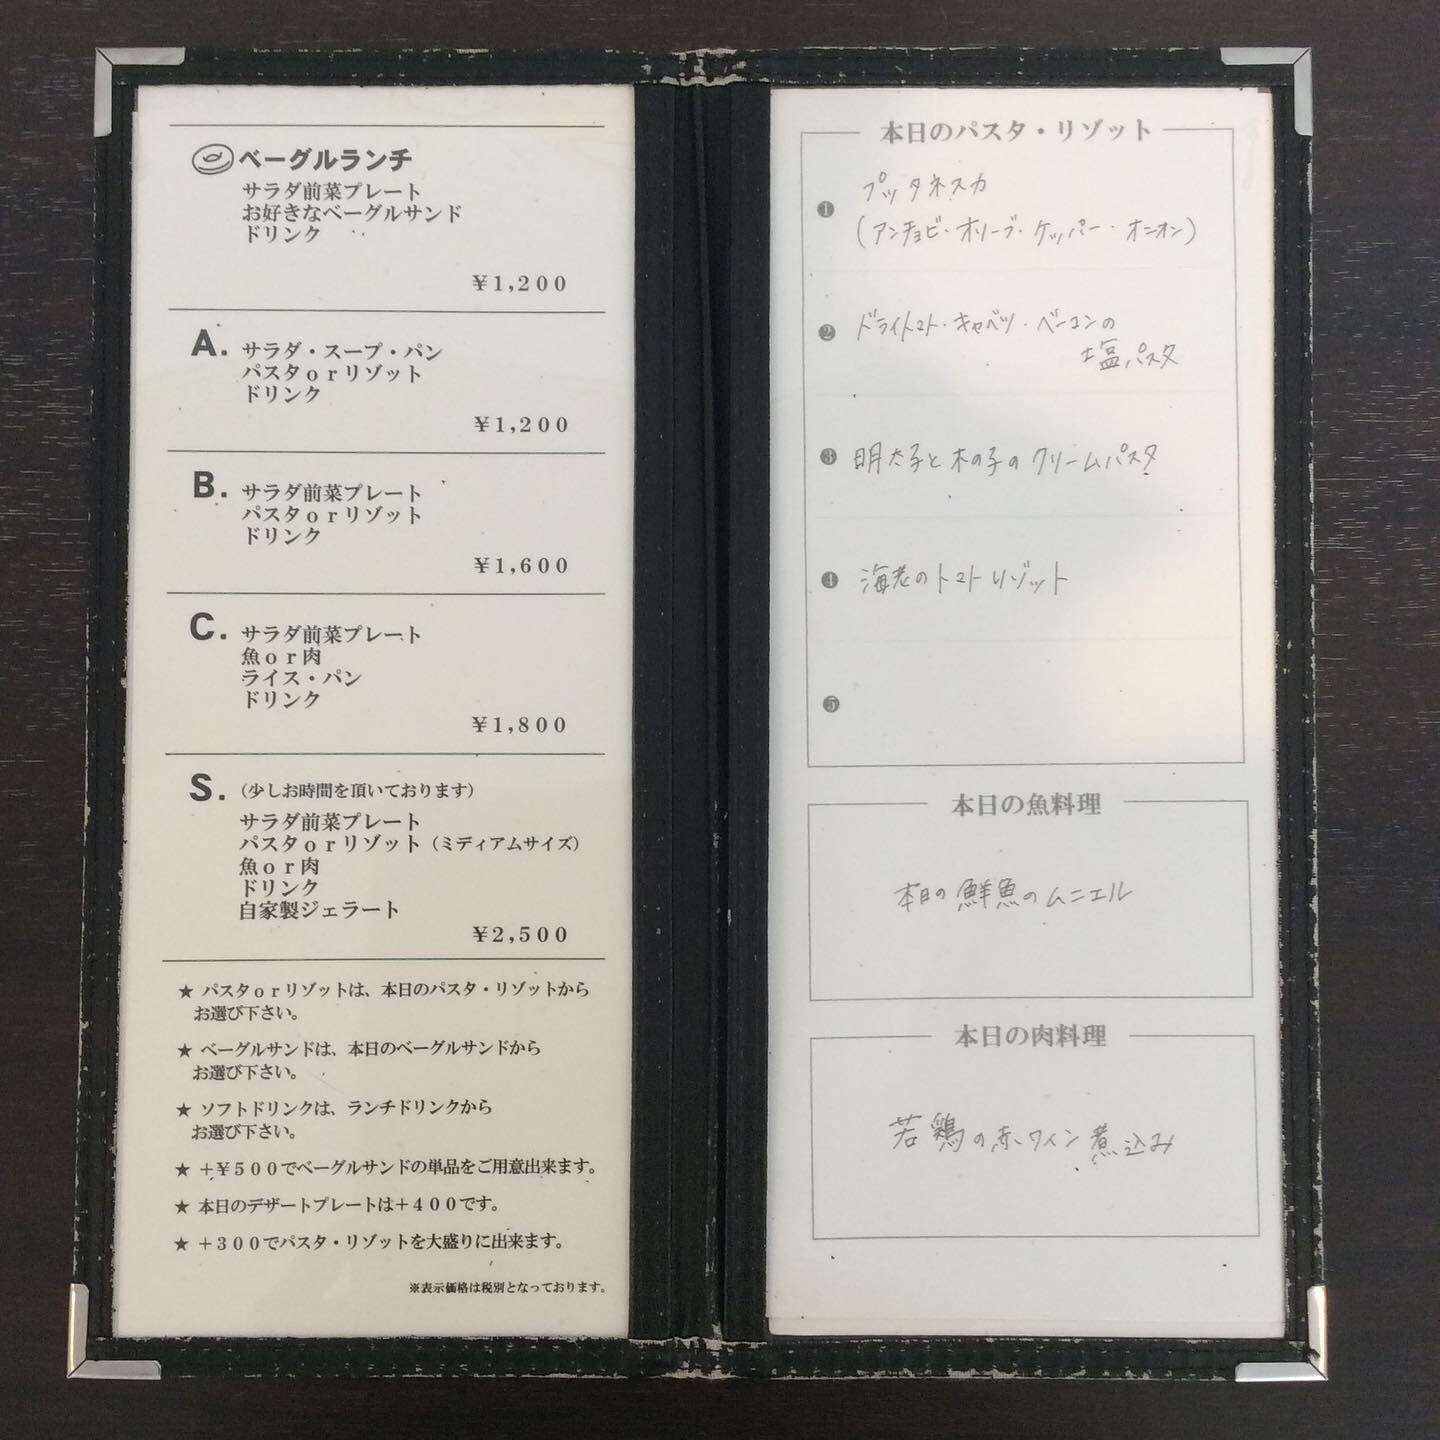 ベーグルランチ
サラダ前菜プレート
お好きなベーグルサンド
ドリンク
￥1,200
A.
サラダ・スープ・パン
パスタorリゾット
ドリンク
￥1,200
B.
サラダ前菜プレート
パスタorリゾット
ドリンク
￥1,600
C.
サラダ前菜プレート
魚or肉
ライス・パン
ドリンク
￥1,800
S.（少しお時間を頂いております）
サラダ前菜プレート
パスタorリゾット（ミディアムサイズ）
魚or肉
ドリンク
自家製ジェラート
￥2,500
★ パスタorリゾットは、本日のパスタ・リゾットから
お選び下さい。
★ ベーグルサンドは、本日のベーグルサンドから
お選び下さい。
★ ソフトドリンクは、ランチドリンクから
お選び下さい。
★ ＋￥500でベーグルサンドの単品をご用意出来ます。
★ 本日のデザートプレートは＋400です。
★ ＋300でパスタ・リゾットを大盛りに出来ます。
※表示価格は税別となっております。
本日のパスタ・リゾット
❶ プッタネスカ
(アンチョビ・オリーブ・ケッパー・オニオン)
❷ ドライトマト・キャベツ・ベーコンの
塩パスタ
❸ 明太子と木の子のクリームパスタ
❹ 海老のトマトリゾット
❺
本日の魚料理
本日の鮮魚のムニエル
本日の肉料理
若鶏の赤ワイン煮込み